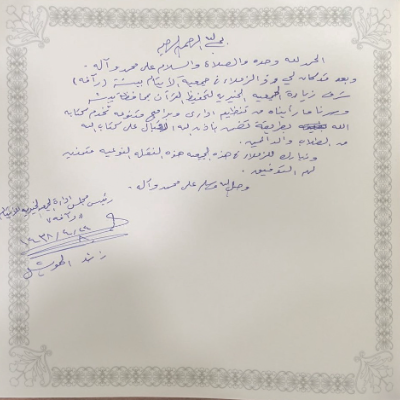 بسم الله الرحمن الرحيم
الحمد لله وحده والصلاة والسلام على محمد وآله .
وبعد فقد كان لي وفد الزملاء في جمعية الأيتام ببيشة (رأفه)
شرف زيارة الجمعية الخيرية لتحفيظ القرآن بمحافظة بيشة
وسرنا ما رأيناه من تنظيم اداري وبرامج متنوعه تخدم كتاب
الله بطريقة تضمن بإذن الله الإقبال على كتاب الله
من الطلاب والدارسين .
ونبارك للزملاء في هذه الجمعيه هذه النقله النوعيه متمنين
لهم التوفيق .
وصل الله وسلم على محمد وآله .
رئيس مجلس ادارة الجمعية الخيرية للأيتام
(رأفه)
راشد